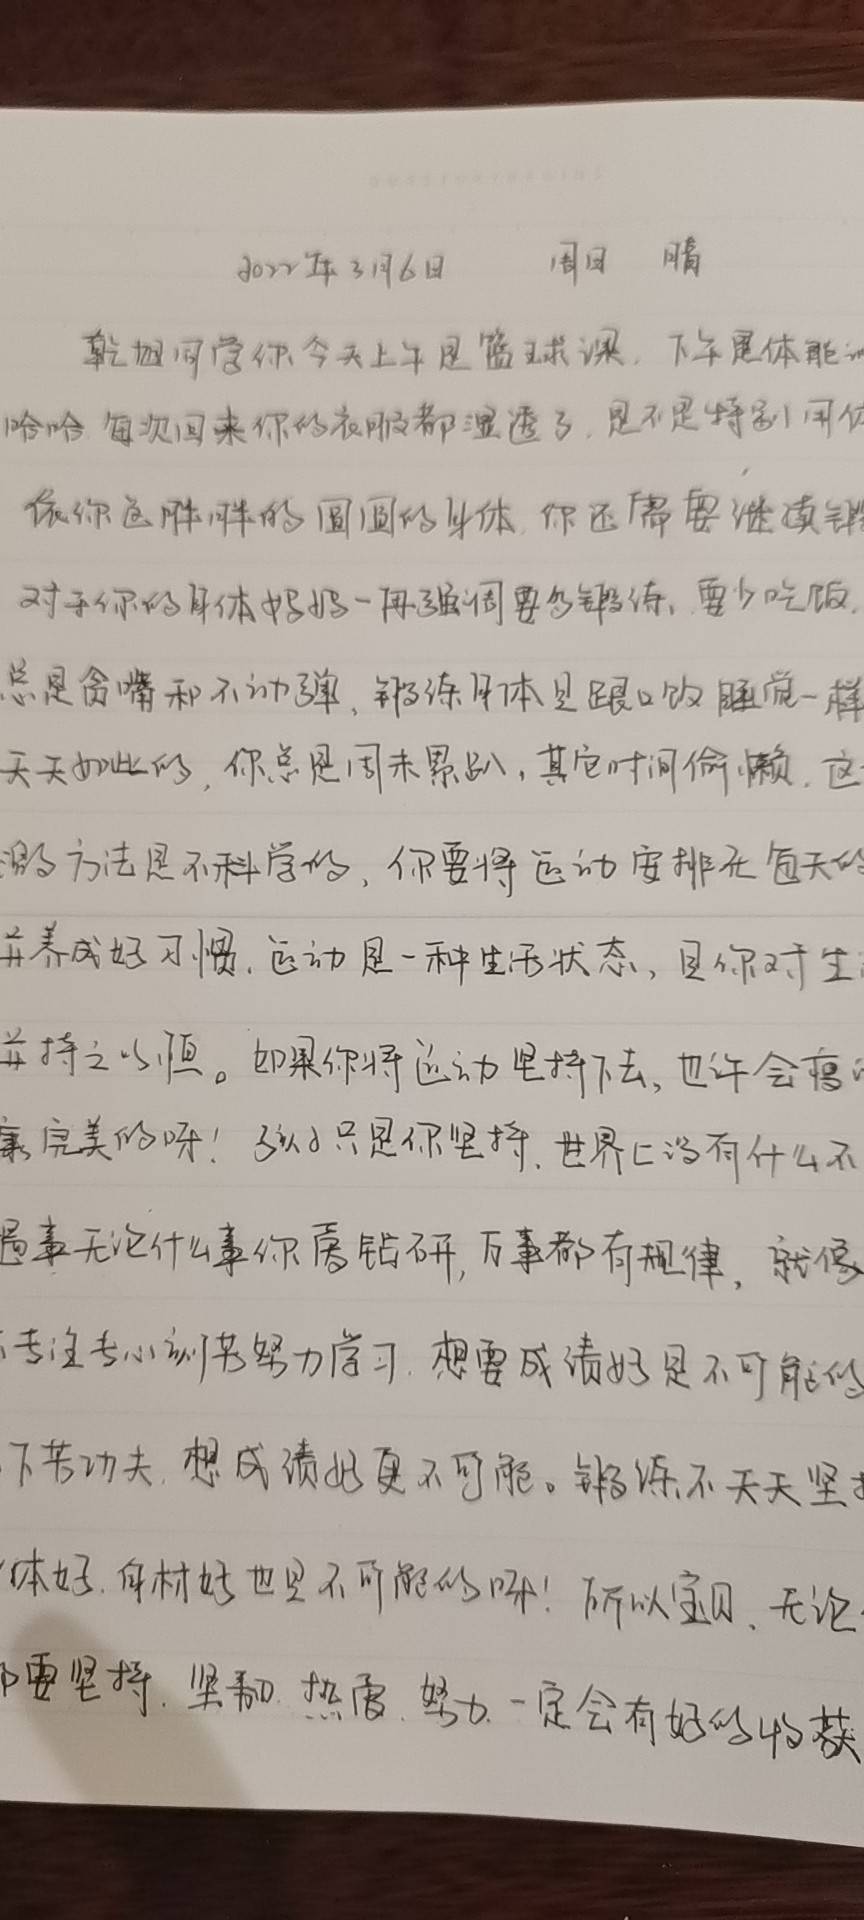 2022年3月6日 周日 晴
乾旭同学你今天上午是篮球课，下午是体能
哈哈，每次回来你的衣服都湿透了，是不是特别
像你这胖胖的圆圆的身体，你还需要继续锻
对于你的身体妈妈一再强调要多锻练，要少吃饭，
总是贪嘴和不动弹，锻练身体是跟吃饭睡觉一样
天天如此的，你总是周末累趴，其它时间偷懒，这
方法是不科学的，你要将运动安排在每天的
并养成好习惯，运动是一种生活状态，是你对生
并持之以恒。如果你将运动坚持下去，也许会瘦
完美的呀！只是你坚持，世界上没有什么不
遇事无论什么事你需钻研，万事都有规律，就像
专注专心刻苦努力学习，想要成绩好是不可能的
下苦功夫，想成绩好更不可能。锻练不天天坚持
体好，身材好也是不可能的呀！所以宝贝，无论
都要坚持，坚韧，热爱，努力，一定会有好的收获